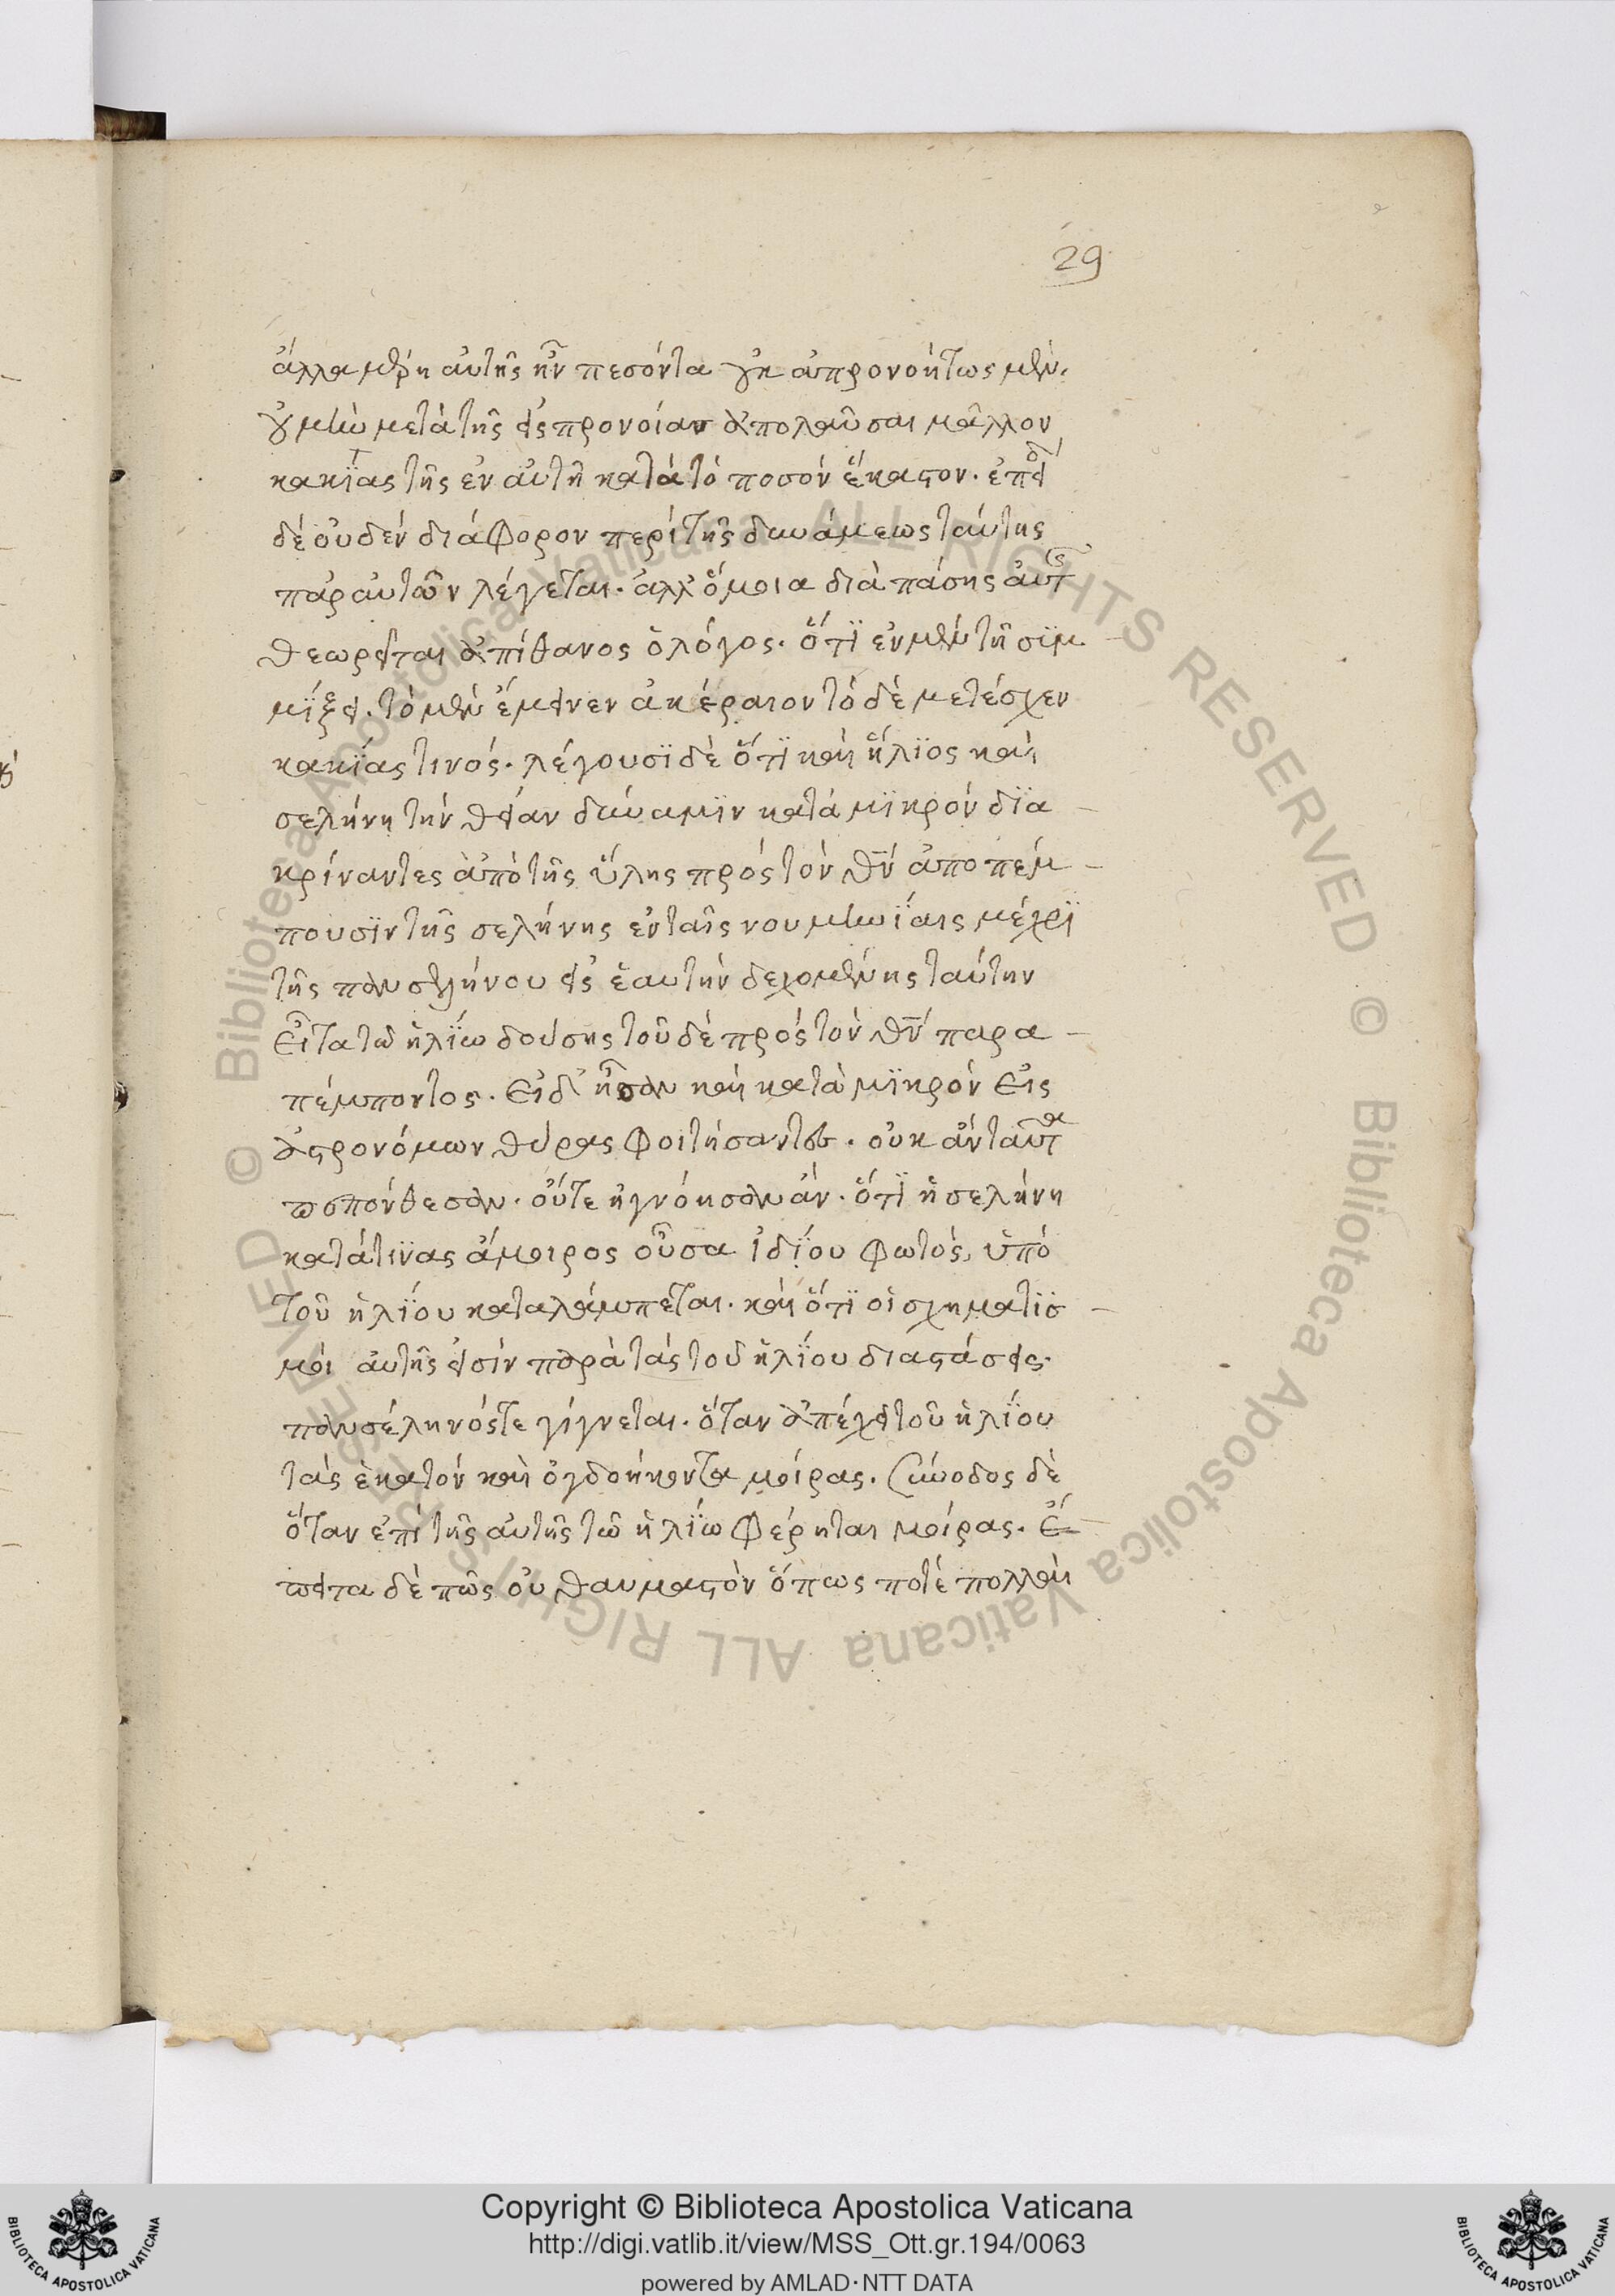 29
ἄλλα μέρη αὐτῆς ἦν πεσόντα οὐκ ἀπρονοήτως μέν.
οὐ μὴν μετὰ τῆς εἰς προνοίαν ἀπολαῦσαι μᾶλλον
κακΐας τῆς ἐν αὐτῆ κατὰ τὸ ποσὸν ἕκαστον. ἐπειδ
δὲ οὐδὲν διάφορον περὶ τῆς δυνάμεως ταύτης
παρ αὐτῶν λέγεται. ἀλλ ὅμοια διὰ πάσης αὐτῆς
θεωρεῖται ἀπίθανος ὁ λόγος. ὅτϊ ἐν μὲν τῆ σϊμ
μΐξει. τὸ μὲν ἔμεινεν ἀκέραιον τὸ δὲ μετέσχεν
κακΐας τινός. λέγουσϊ δὲ ὅτϊ καὶ ἥλϊος καὶ
σελήνη τὴν θείαν δύναμϊν κατὰ μϊκρὸν δϊα
κρίναντες ἀπὸ τῆς ὕλης πρὸς τὸν θν ἀποπέμ
πουσϊν τῆς σελήνης ἐν ταῖς νουμηνΐαις μέχρϊ
τῆς πανσελήνου εἰς ἑαυτὴν δεχομένης ταύτην
Εἶτα τῶ ἡλΐω δούσης τοῦ δὲ πρὸς τὸν θν παρα
πέμποντος. Εἰ δ ἦσαν καὶ κατὰ μϊκρὸν Εἰς
ἀστρονόμων θύρας φοιτήσαντες. οὐκ ἂν ταῦτα
πεπόνθεσαν. οὔτε ἠγνόησαν ἄν. ὅτϊ ἡ σελήνη
κατά τινας ἄμοιρος οὖσα ἰδΐου φωτός, ὑπὸ
τοῦ ἡλΐου καταλάμπεται. καὶ ὅτϊ οἱ σχηματϊσ
μοὶ αὐτῆς εἰσὶν παρὰ τὰς τοῦ ἡλΐου διαστάσεις.
πανσέληνός τε γίγνεται. ὅταν ἀπέχει τοῦ ἡλΐου
τὰς ἑκατὸν καὶ ὀγδοήκοντα μοίρας. Σύνοδος δὲ
ὅταν ἐπὶ τῆς αὐτῆς τῶ ἡλΐω φέρηται μοίρας. Ἔ
πειτα δὲ πῶς οὐ θαυμαστὸν ὅπως ποτὲ πολλαὶ
Copyright © Biblioteca Apostolica Vaticana
http://digi.vatlib.it/view/MSS_Ott.gr.194/0063
powered by AMLAD·NTT DATA
BIBLIOTECA APOSTOLICA VATICANA
BIBLIOTECA APOSTOLICA VATICANA
© Biblioteca Apostolica Vaticana ALL RIGHTS RESERVED © Biblioteca Apostolica Vaticana ALL RIGHTS RESERVED